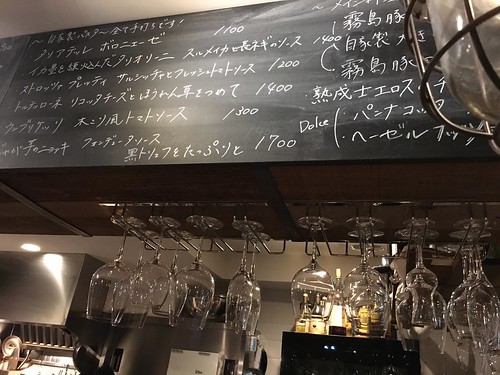 〜自家製パスタ〜全て手打ちです！
タリアテッレ ボロニェーゼ 1100
イカ墨を練込んだタリオリーニ スルメイカと長ネギのソース 1400
ストロッツァプレッティ サルシッチャとフレッシュトマトソース 1200
トルテッローネ リコッタチーズとほうれん草をつめて 1400
ウンブリケッリ 木こり風トマトソース 1300
じゃが芋のニョッキ フォンデュータソース
黒トリュフをたっぷりと 1700
〜メイン料
霧島豚
自家製
霧島豚
熟成士エロス
Dolce
パンナコッタ
ヘーゼルナッツ